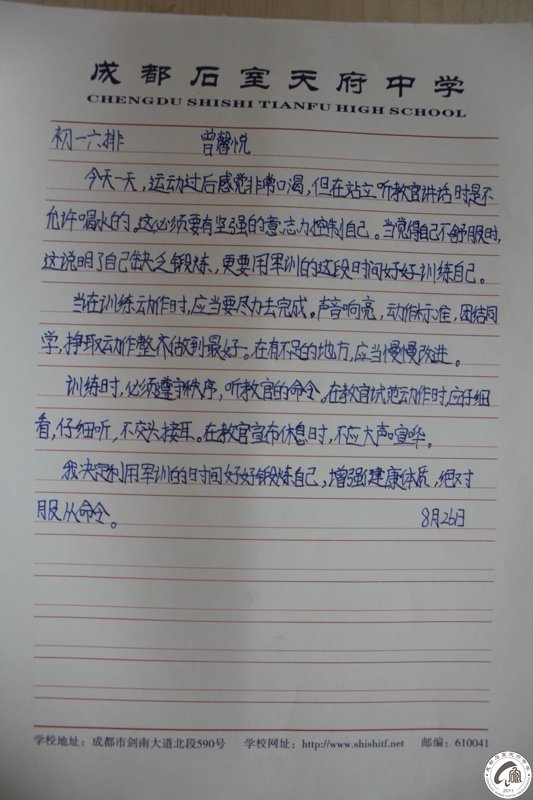 成都石室天府中学
CHENGDU SHISHI TIANFU HIGH SCHOOL
初一六排 曾馨悦
今天一天，运动过后感觉非常口渴，但在站立听教官讲话时是不
允许喝水的，这必须要有坚强的意志力控制自己。当觉得自己不舒服时，
这说明了自己缺乏锻炼，更要用军训的这段时间好好训练自己。
当在训练动作时，应当要尽力去完成。声音响亮，动作标准，团结同
学，挣取动作整齐做到最好。在有不足的地方，应当慢慢改进。
训练时，必须遵守秩序，听教官的命令。在教官试范动作时，应仔细
看，仔细听，不交头接耳。在教官宣布休息时，不应大声喧哗。
我决定利用军训的时间好好锻炼自己，增强健康体质，绝对
服从命令。 8月26日
学校地址：成都市剑南大道北段590号 学校网址：http://www.shishitf.net 邮编：610041
2011